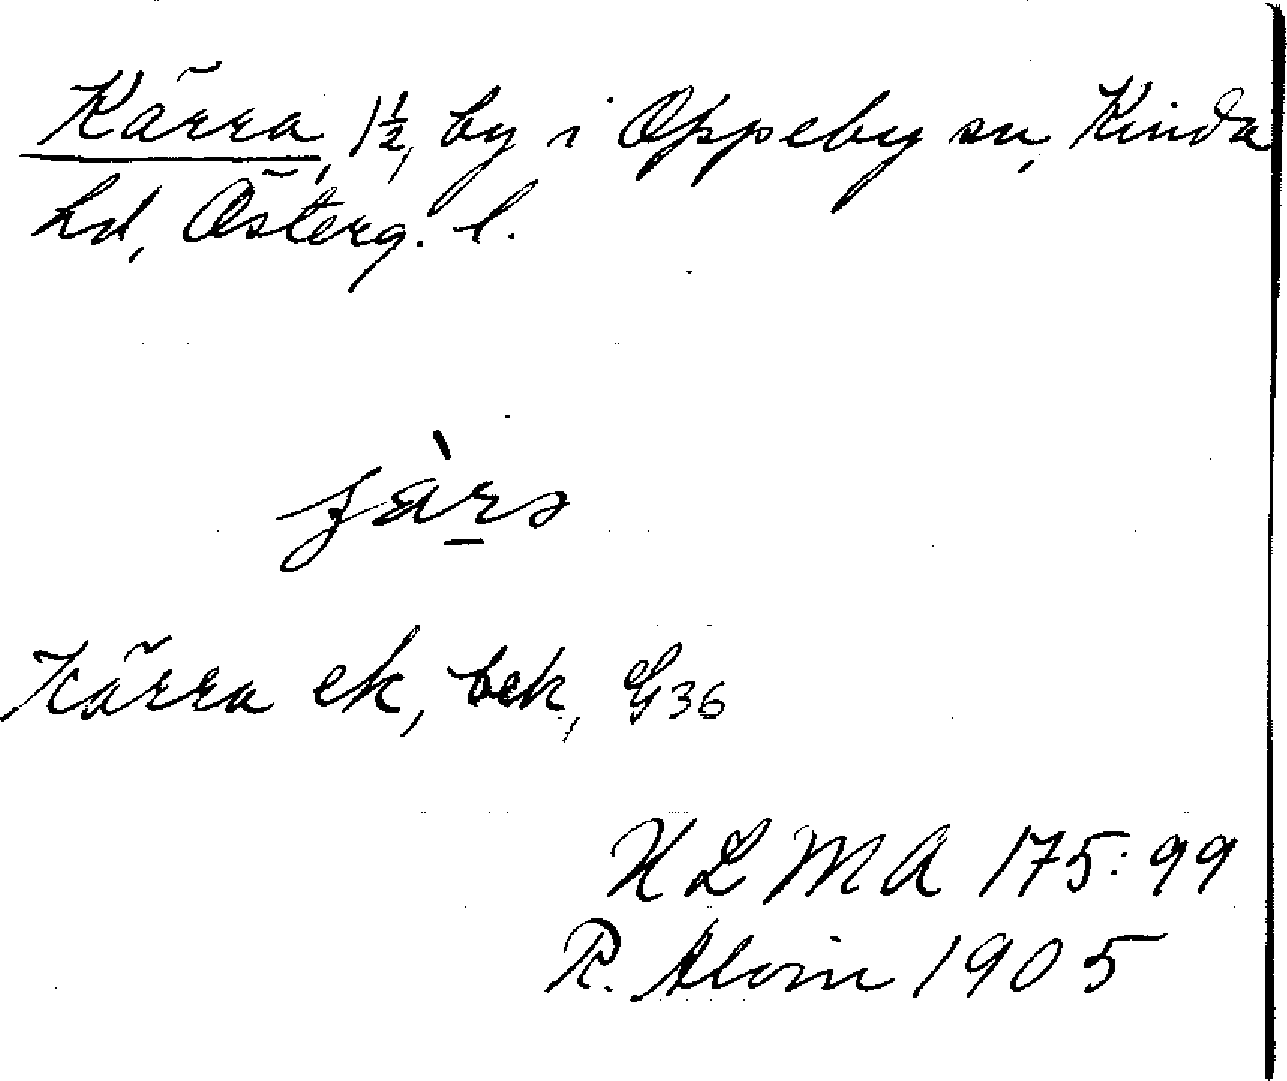 Kärra, 1½, by i Oppeby sn, Kinda
hd, Österg. l.
Kärra ek, bek, G36
KLMA 175:99
R. Alvin 1905